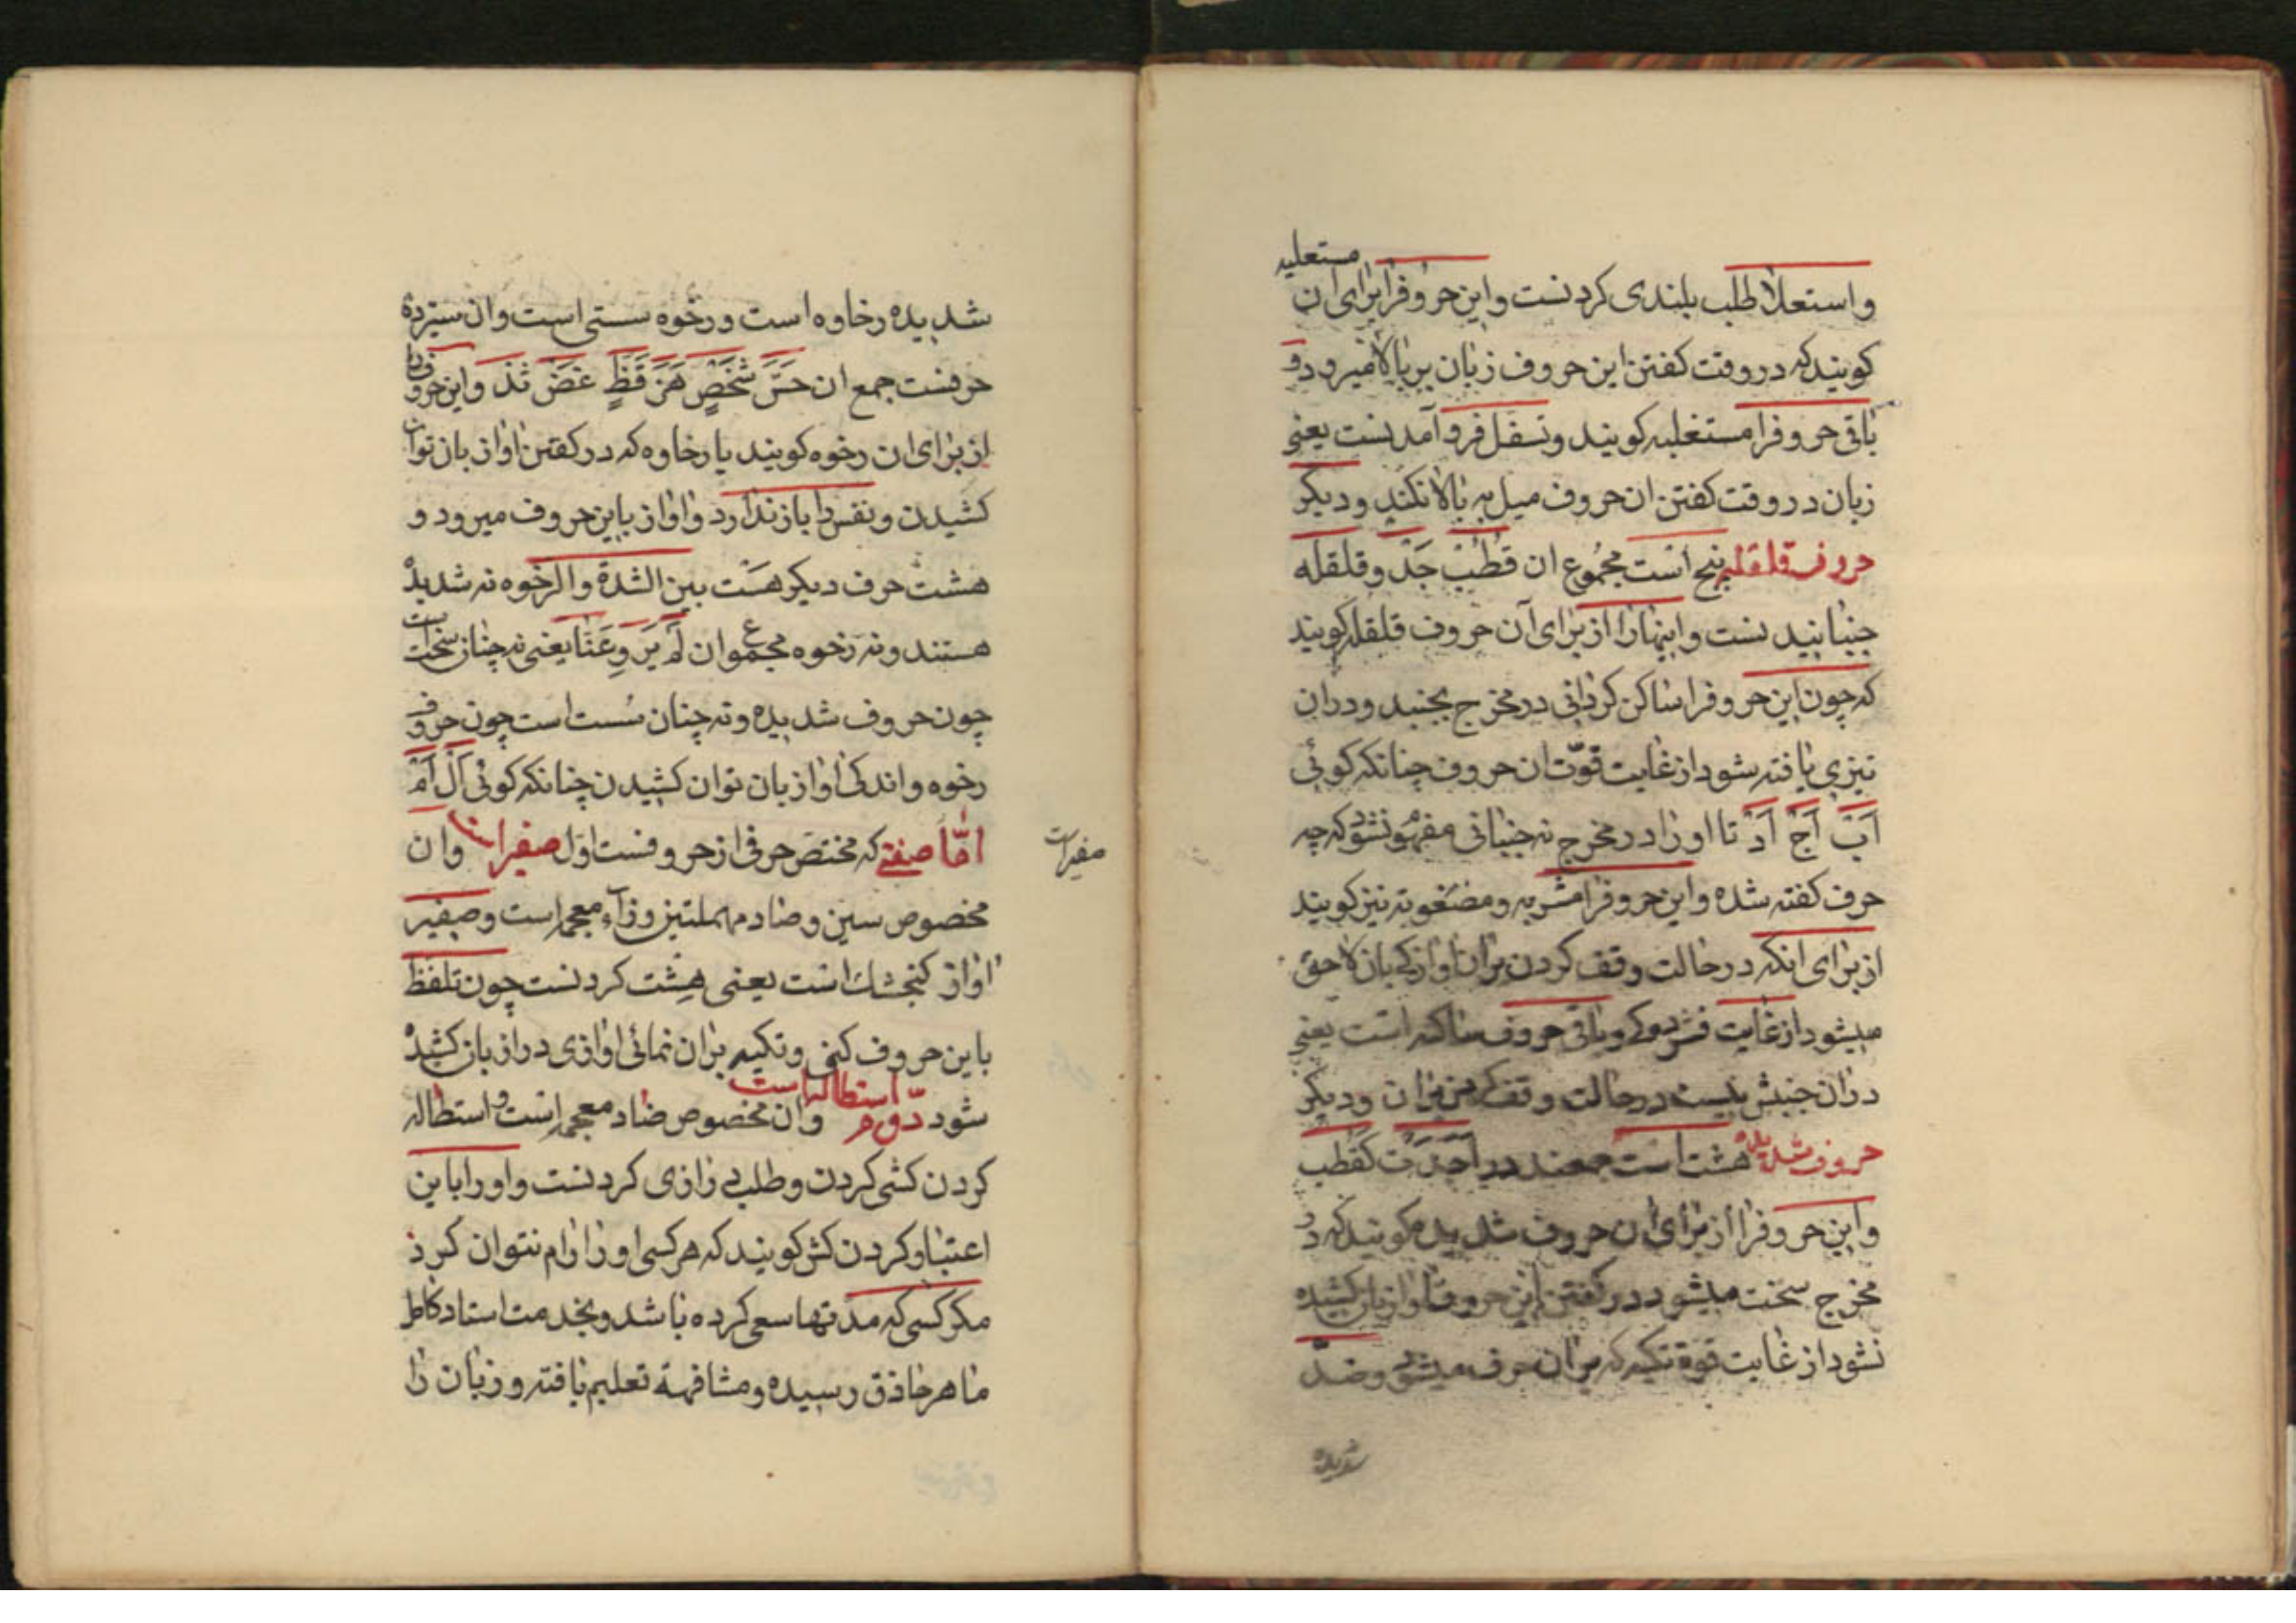 مستعلیه
واستعلا طلب بلندی کردنست واین حروفرا برای ان
کویند که در وقت کفتن این حروف زبان بر بالا میرود و
باقی حروفرا مستفلیه کویند وتسفل فرو آمدنست یعنی
زبان در وقت کفتن ان حروف میل به بالا نکند ودیکر
حروف قلقله پنج است مجموع ان قُطْبُ جَدّ وقلقله
جنبانیدنست واینها را از برای آن حروف قلقله کویند
که چون این حروفرا ساکن کردانی در مخرج بجنبد ودران
تیزی یافته شود از غایت قوّت ان حروف چنانکه کوئی
اَبْ اَجْ اَدْ تا او را در مخرج نه جنبانی مفهوم نشود که چه
حرف کفته شده واین حروفرا مشربه ومضغوته نیز کویند
از برای انکه در حالت وقف کردن بران اوازکی بان لاحق
میشود از غایت فشردکی وباقی حروف ساکنه است یعنی
دران جنبش نیست در حالت وقف کردن بران ودیکر
حروف شدیده هشت است جمعند در اَجَدْتَ کَقَطَب
واین حروفرا از برای ان حروف شدیده کویند که در
مخرج سخت میشود در کفتن این حروف واواز بان کشیده
نشود از غایت قوة تکیه که بران حرف میشود وضدّ
شدیده
شدیده رخاوه است ورخوه سستی است وان سیزده
حرفست جمع ان حَسَّ شَخْصٍ هَزَ فَظٍّ غَضَ ثَذَ واین حروفرا
از برای ان رخوه کویند یا رخاوه که در کفتن اواز بان توان
کشیدن ونفس را باز ندارد واواز باین حروف میرود و
هشت حرف دیکر هست بین الشدة والرخوه نه شدیده
هستند ونه رخوه مجموع ان لَمْ یَرَوِعَنّا یعنی نه چنان سخت است
چون حروف شدیده ونه چنان سُست است چون حروف
رخوه واندکی اواز بان توان کشیدن چنانکه کوئی اَلْ اَمْ
امّا صفتی که مختص حرفی از حروفست اول صفیر است وان
صفیرات
مخصوص سین وصاد مهملتین وزآء معجمه است وصفیر
اواز کنجشک است یعنی هِشت کردنست چون تلفظ
باین حروف کنی وتکیه بران نمائی اوازی دراز بان کشیده
شود دوّم استطاله است وان مخصوص ضاد معجمه است واستطاله
کردن کشی کردن وطلب درازی کردنست واورا باین
اعتبار کردن کش کویند که هر کسی اورا رام نتوان کرد
مکر کسی که مدّتها سعی کرده باشد وبخدمت استاد کامل
ماهر حاذق رسیده ومشافهة تعلیم یافته وزبان را